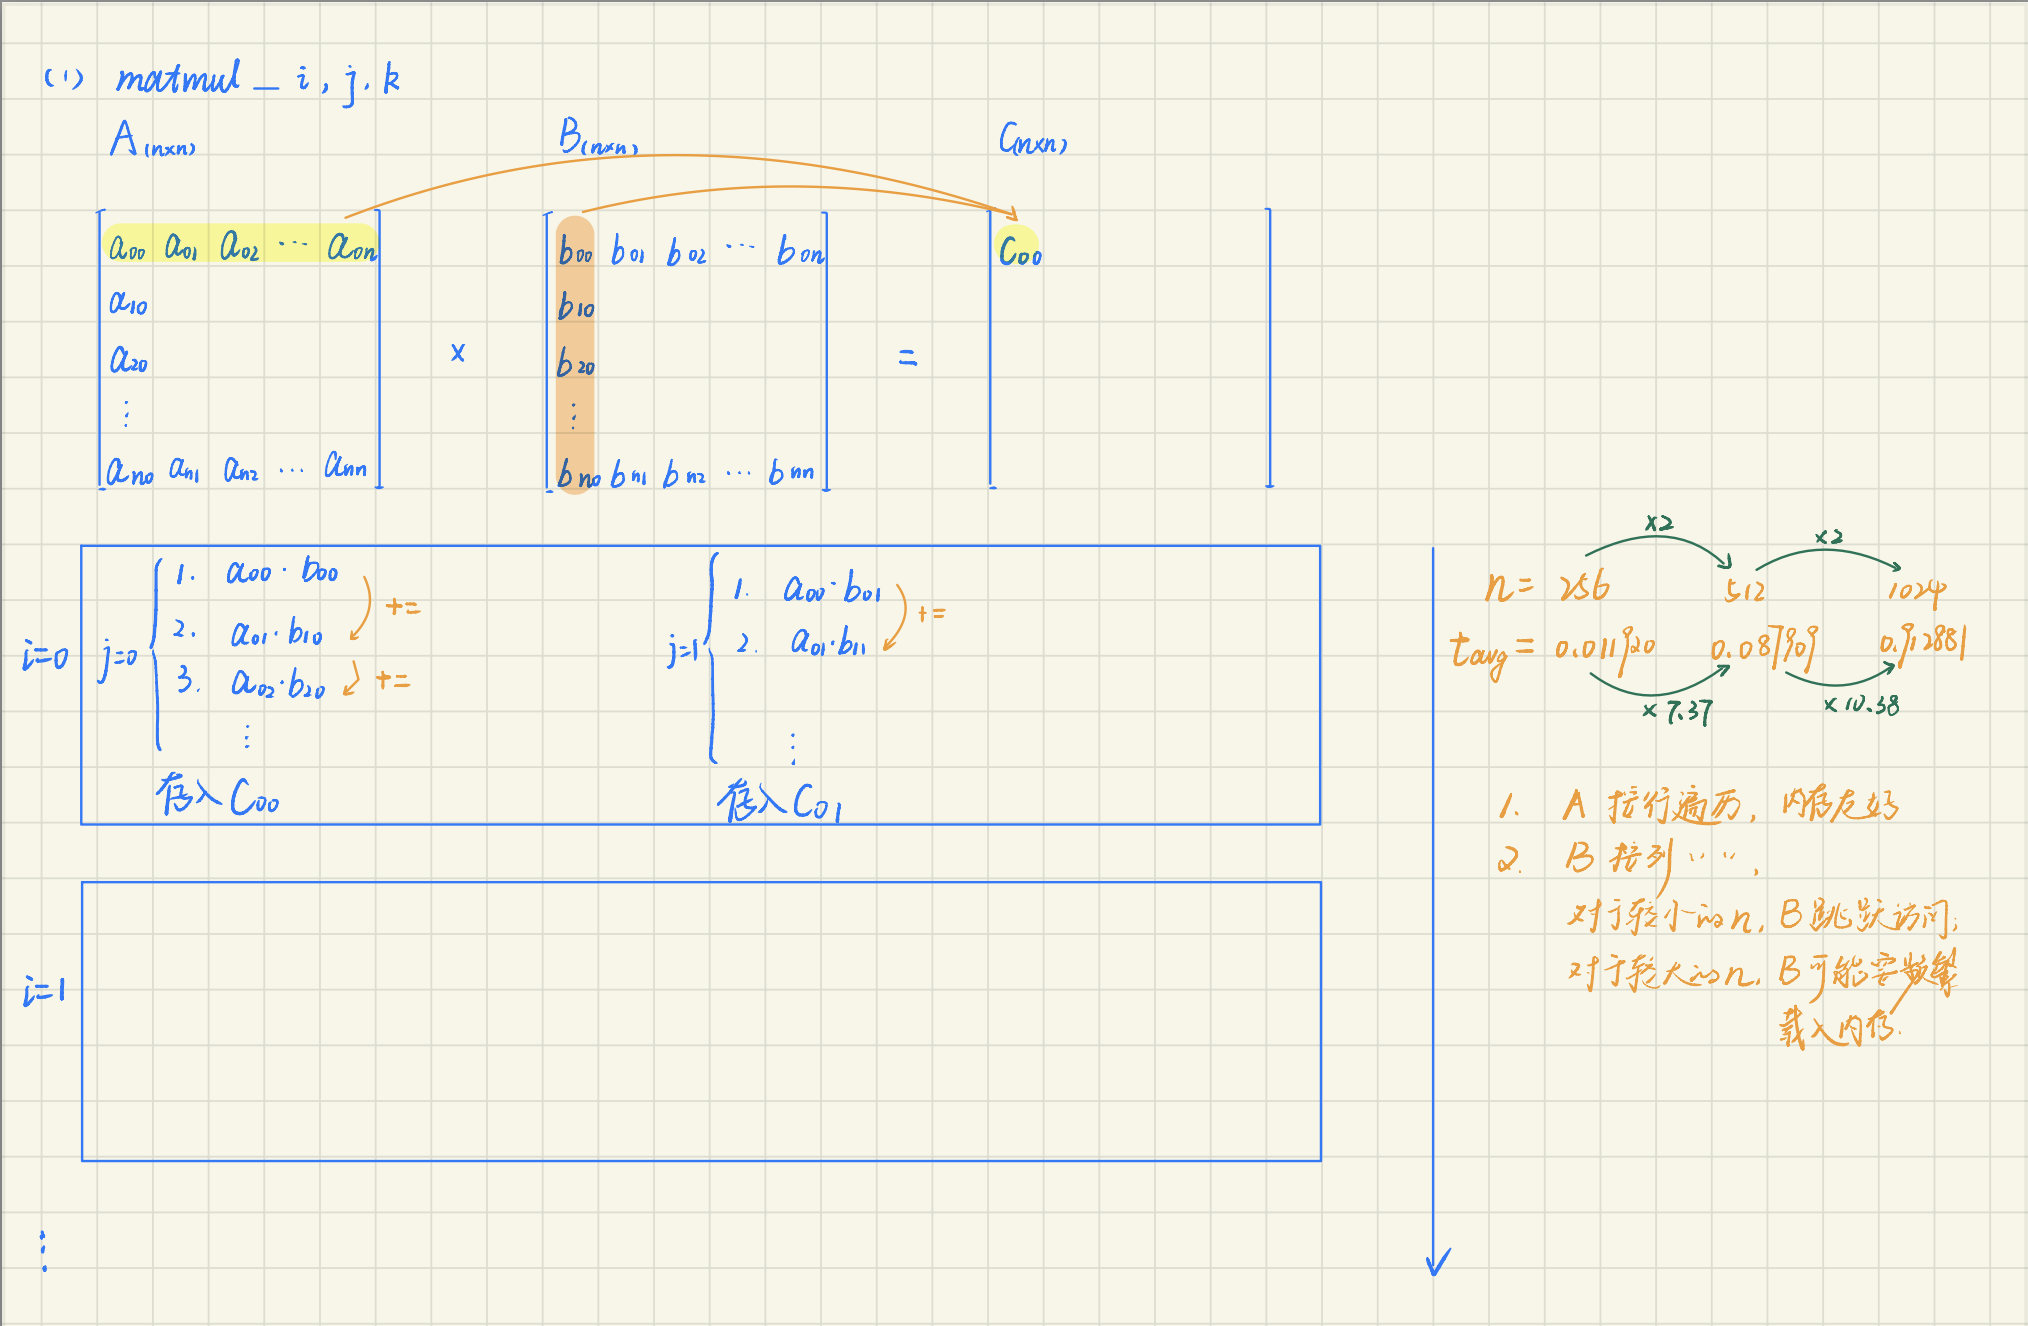 (1) matmul _ i, j, k
A(n×n) B(n×n) C(n×n)
a00 a01 a02 ... a0n
a10
a20
⋮
an0 an1 an2 ... ann
×
b00 b01 b02 ... b0n
b10
b20
⋮
bn0 bn1 bn2 ... bnn
=
C00
i=0
j=0
1. a00 · b00
+=
2. a01 · b10
+=
3. a02 · b20
⋮
存入 C00
j=1
1. a00 · b01
+=
2. a01 · b11
⋮
存入 C01
i=1
⋮
×2 ×2
n = 256 512 1024
tavg = 0.011920 0.087909 0.912881
× 7.37 × 10.38
1. A 按行遍历, 内存友好
2. B 按列 ····,
对于较小的n, B跳跃访问;
对于较大的n, B可能要频繁
载入内存.